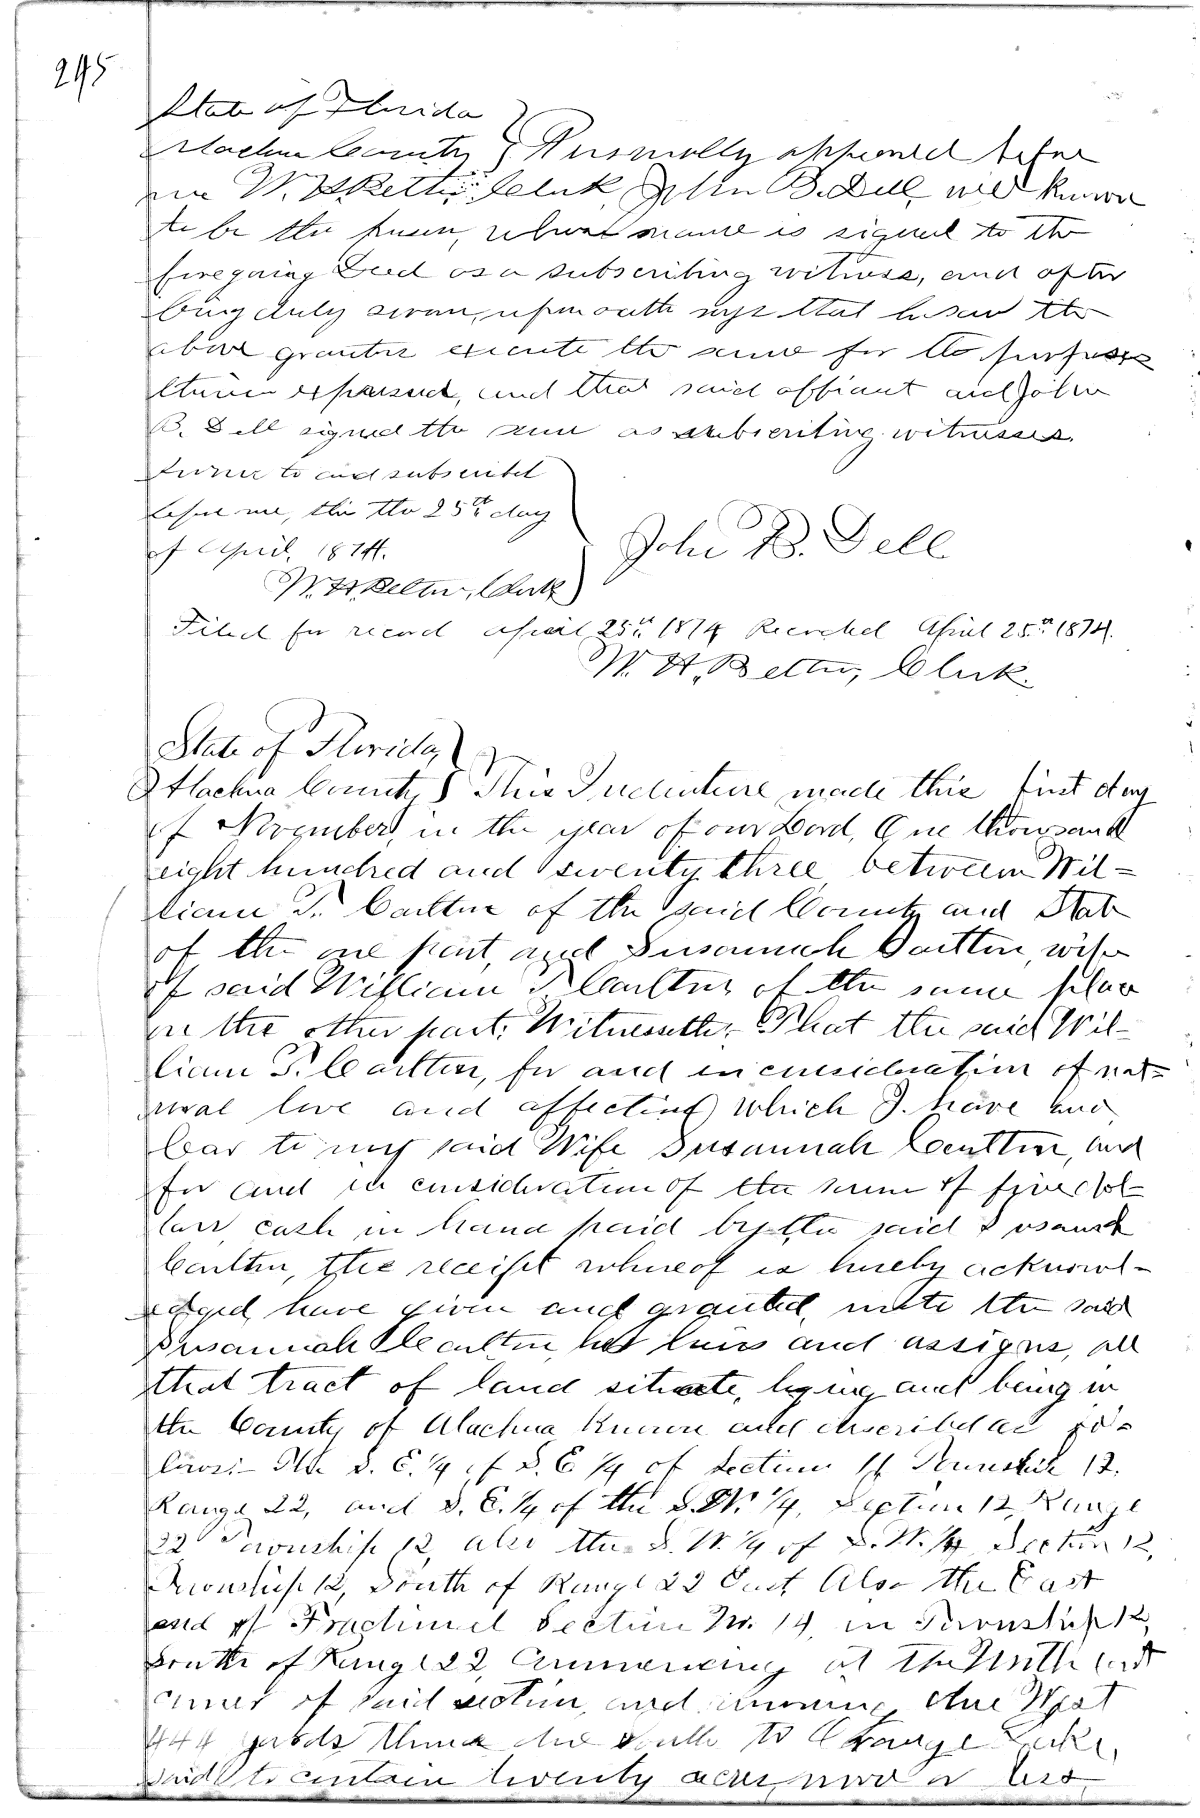 245
State of Florida
Alachua County } Personally appeared before
me W. H. Belton, Clerk, John B. Dell, well known
to be the person, whose name is signed to the
foregoing Deed as a subscribing witness, and after
being duly sworn, upon oath says that he saw the
above grantor execute the same for the purposes
therein expressed, and that said affiant and John
B. Dell signed the same as subscribing witnesses.
Sworn to and subscribed
before me, this the 25th day
of April, 1874.
John B. Dell
W. H. Belton, Clerk
Filed for record April 25th 1874 Recorded April 25th 1874.
W. H. Belton, Clerk.
State of Florida,
Alachua County } This Indenture made this first day
of November, in the year of our Lord, One thousand
eight hundred and seventy three between Wil=
liam T. Carlton of the said County and State
of the one part, and Susannah Carlton, wife
of said William T. Carlton, of the same place
on the other part: Witnesseth: That the said Wil-
liam T. Carlton, for and in consideration of nat=
ural love and affection which I have and
bear to my said Wife Susannah Carlton, and
for and in consideration of the sum of five dol-
lars cash in hand paid by the said Susannah
Carlton, the receipt whereof is hereby acknowl-
edged, have given and granted, unto the said
Susannah Carlton, her heirs and assigns, all
that tract of land situate, lying and being in
the County of Alachua known and described as fol-
lows:- The S. E. 1/4 of S. E. 1/4 of Section 11 Township 12.
Range 22, and S. E. 1/4 of the S. W. 1/4, Section 12, Range
22 Township 12, also the S. W. 1/4 of S. W. 1/4 Section 12,
Township 12, South of Range 22 East Also the East
end of Fractional Section No. 14, in Township 12,
South of Range 22, Commencing at the North East
corner of said section, and running due West
444 yards thence due South to Orange Lake,
said to contain twenty acres, more or less